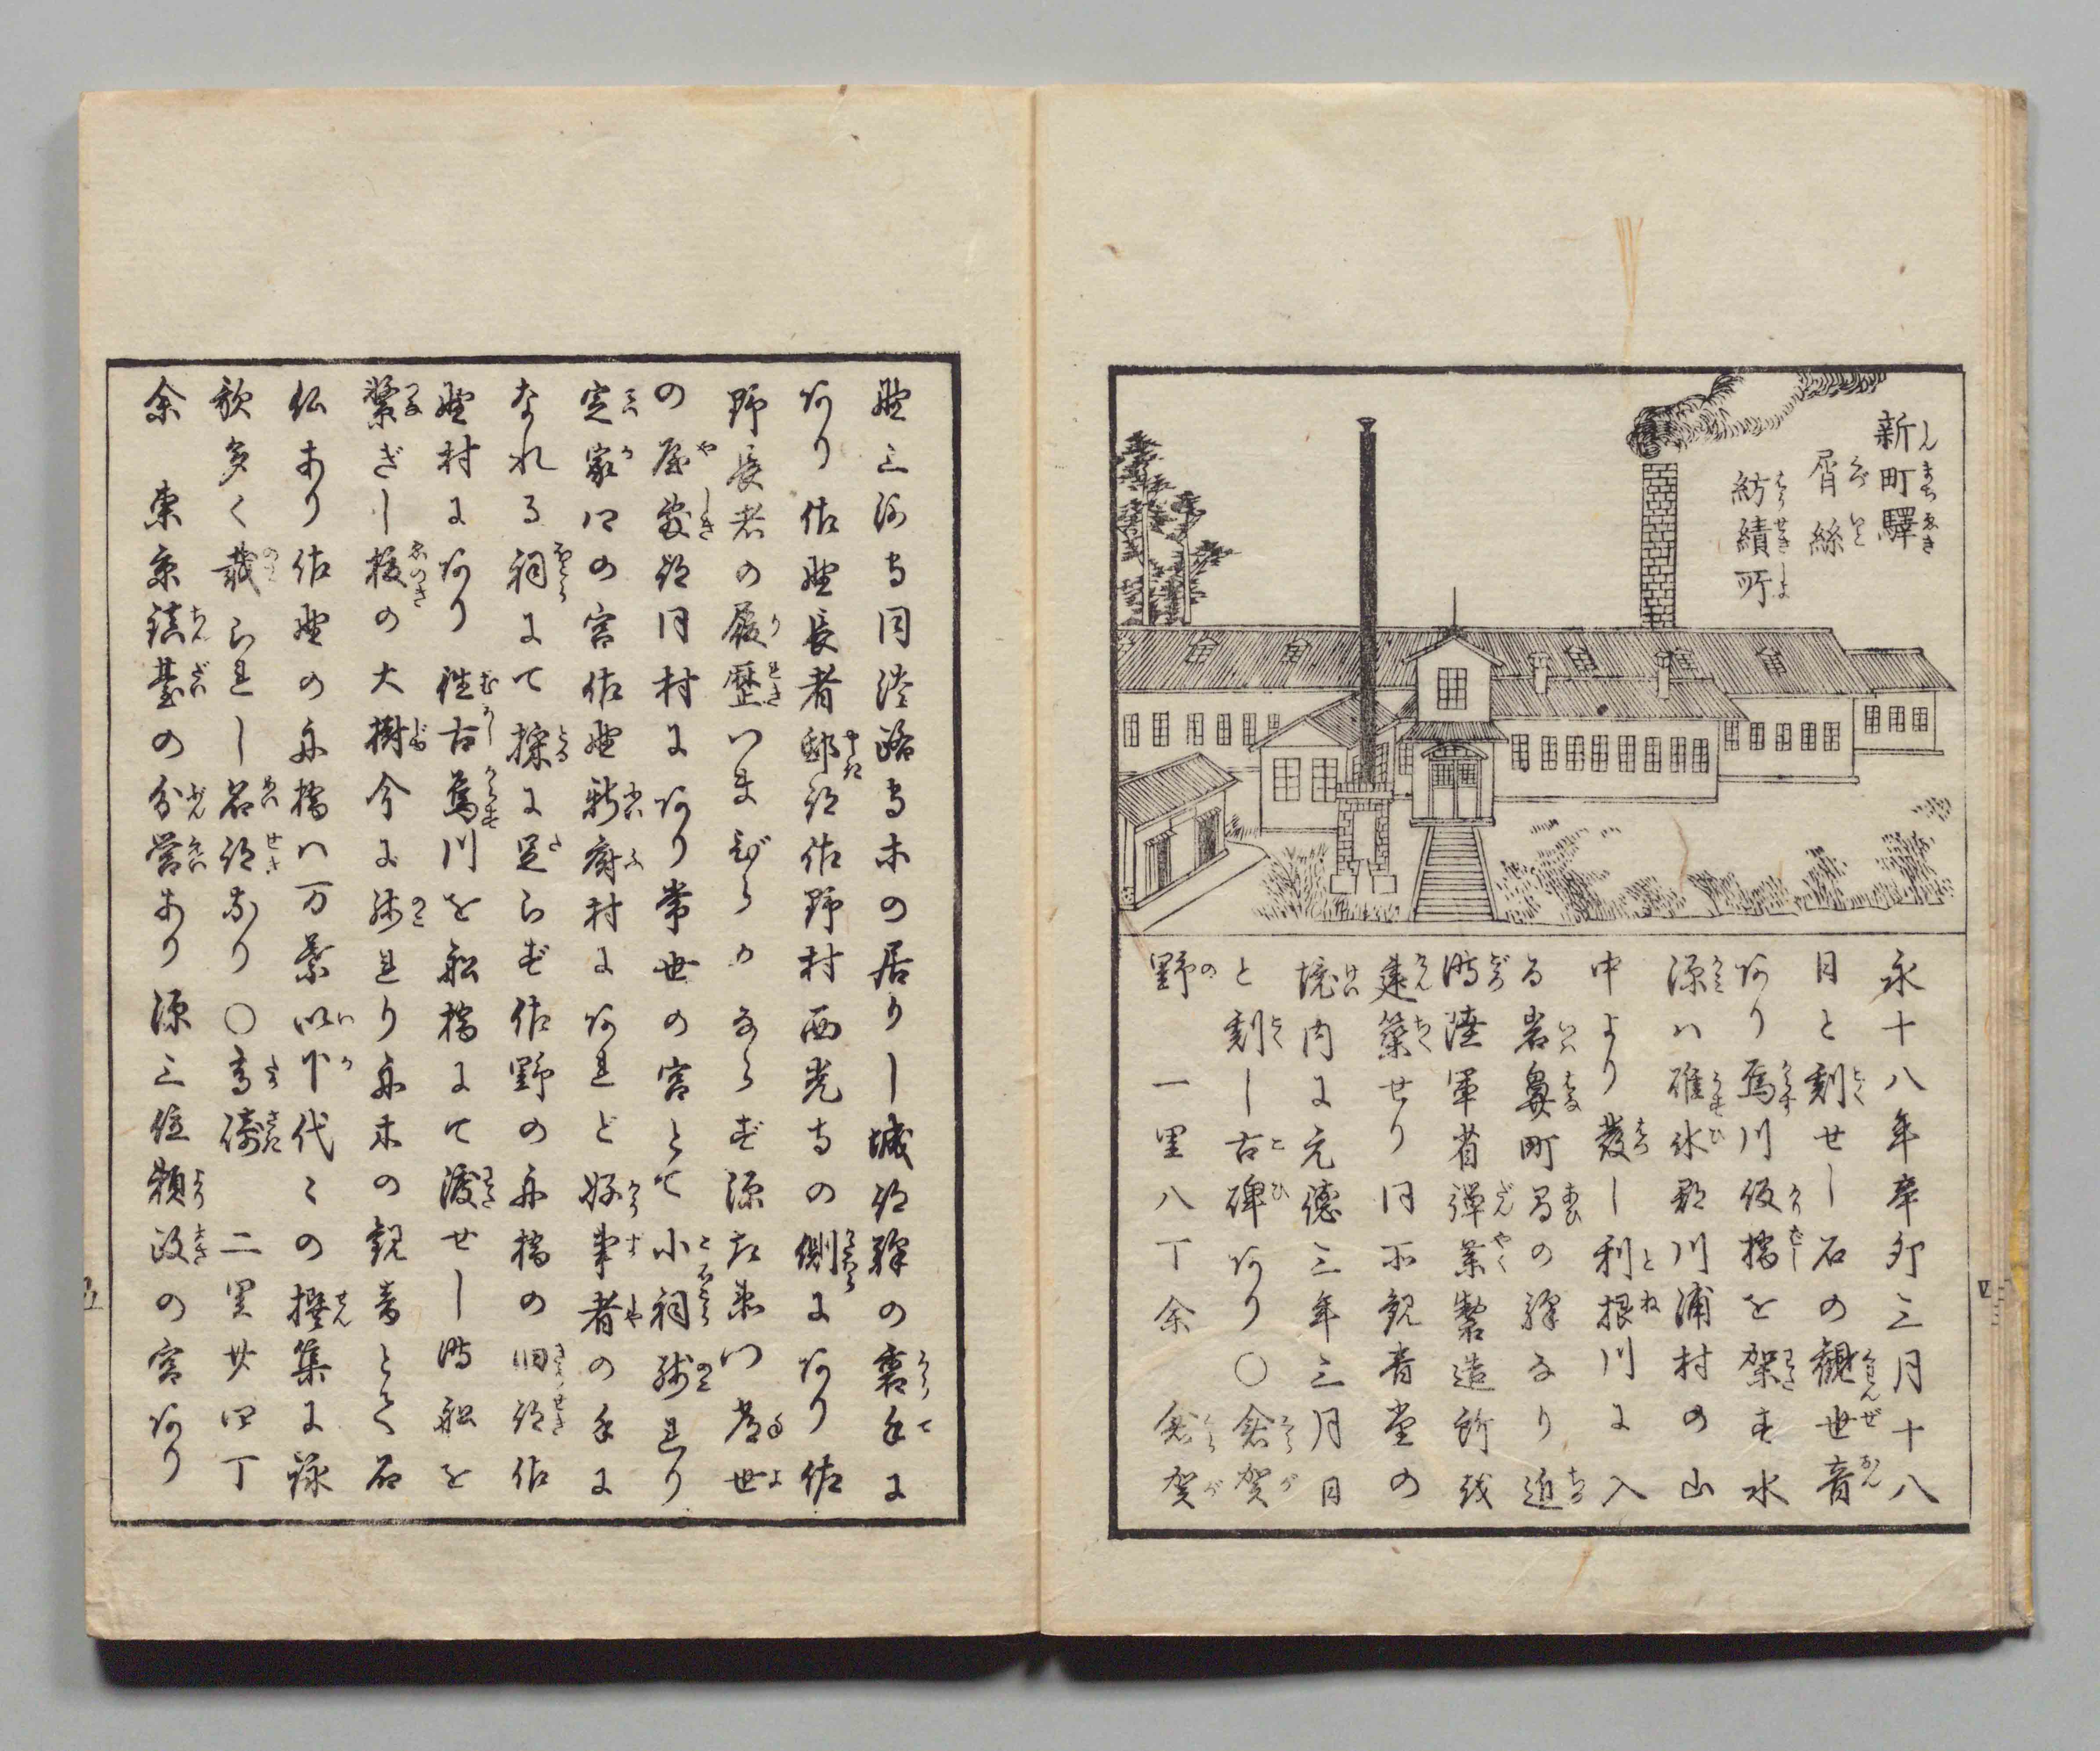 新町驛
屑絲
紡績所
永十八年辛卯三月十八
日と刻せし石の観世音
あり烏川仮橋を架す水
源ハ碓氷郡川浦村の山
中より發し利根川に入
る岩鼻町昌の驛なり近
時陸軍省彈薬製造所を
建築せり同所観音堂の
境内に元徳三年三月日
と刻し古碑あり〇倉賀
野 一里八丁余 倉賀
野三河守同淡路守木の居りし城跡驛の裏手に
あり佐野長者邸跡佐野村西光寺の側にあり佐
野長者の履歴いまだつまびらかならず源左衛門常世
の屋敷跡同村にあり常世の宮とて小祠残れり
定家ハの宮佐野新廚村にあれど好事者の手に
なれる祠にて採に足らず佐野の舟橋の旧跡佐
野村にあり往古烏川を船橋にて渡せし時船を
繋ぎし榎の大樹今に残れり舟木の観音とて石
仏あり佐野の舟橋ハ万葉以下代々の撰集に詠
歌多く載られし名跡なり〇高崎 二里廿四丁
余 東京鎮臺の分営あり源三位頼政の宮あり